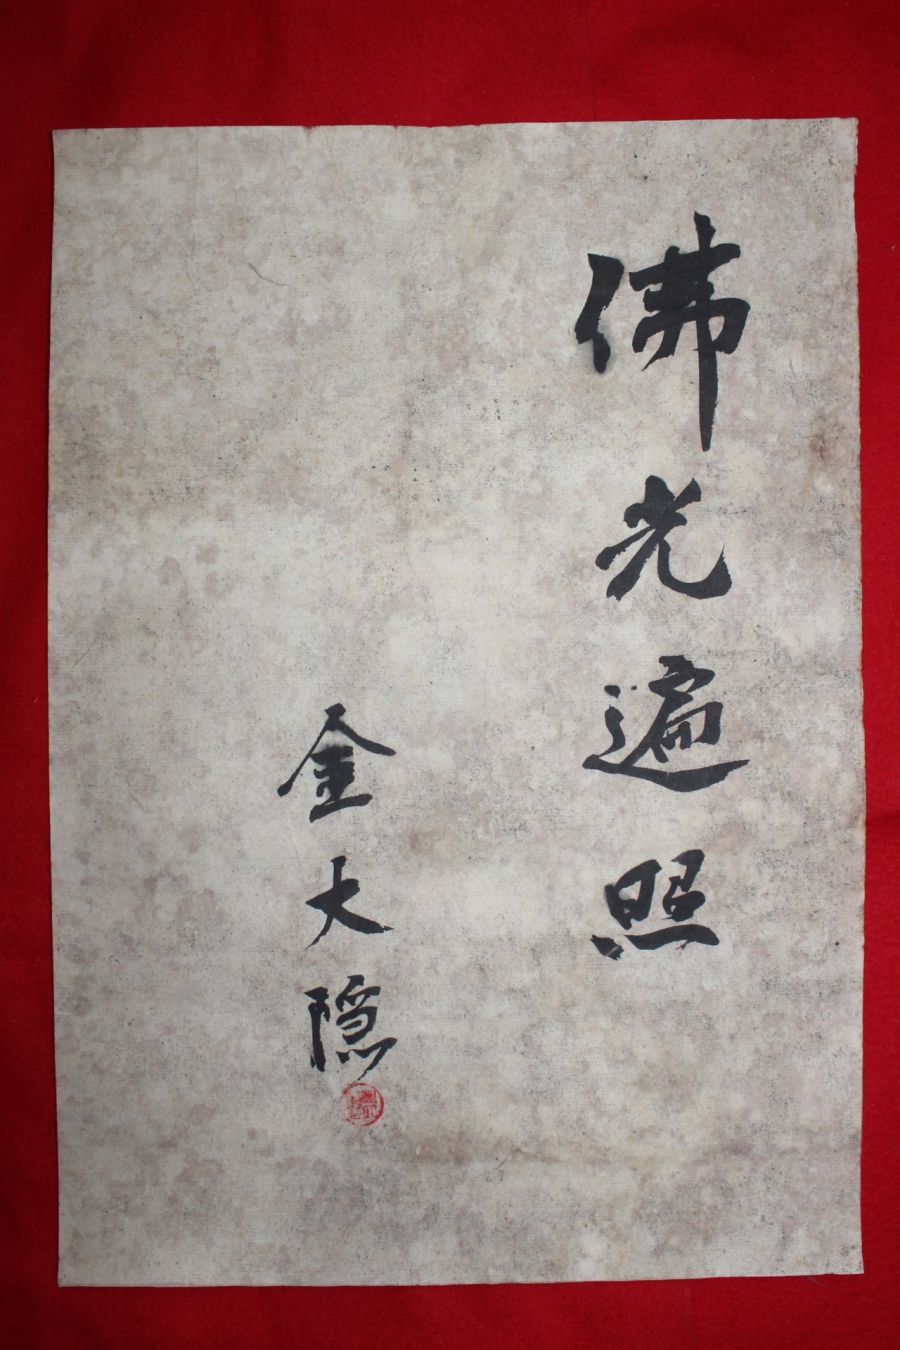 佛光遍照
金大隱